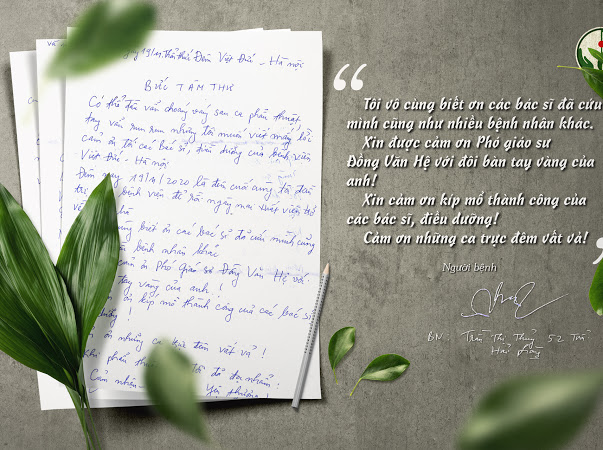 19/1. Đêm Việt Đức - Hà nội
BỨC TÂM THƯ
Có thể tôi vẫn choáng váng sau ca phẫu thuật
tay vẫn run run nhưng tôi muốn viết mấy lời
cảm ơn tới các bác sĩ, điều dưỡng của bệnh viện
Việt Đức - Hà nội
Đêm nay 19/1/2020 là đêm cuối cùng tôi
bệnh viện để rồi ngày mai xuất viện
biết ơn các bác sĩ đã cứu mình cũng
bệnh nhân khác
cảm ơn Phó giáo sư Đồng Văn Hệ với
tay vàng của anh !
ơn kíp mổ thành công của các bác sĩ
!
ơn những ca trực đêm vất vả !
khi phẫu
Cảm nhận
Yêu thương !
“
Tôi vô cùng biết ơn các bác sĩ đã cứu
mình cũng như nhiều bệnh nhân khác.
Xin được cảm ơn Phó giáo sư
Đồng Văn Hệ với đôi bàn tay vàng của
anh!
Xin cảm ơn kíp mổ thành công của
các bác sĩ, điều dưỡng!
Cảm ơn những ca trực đêm vất vả!
Người bệnh
BN Trần Thị Thủy 52 Tuổi
Hải Phòng